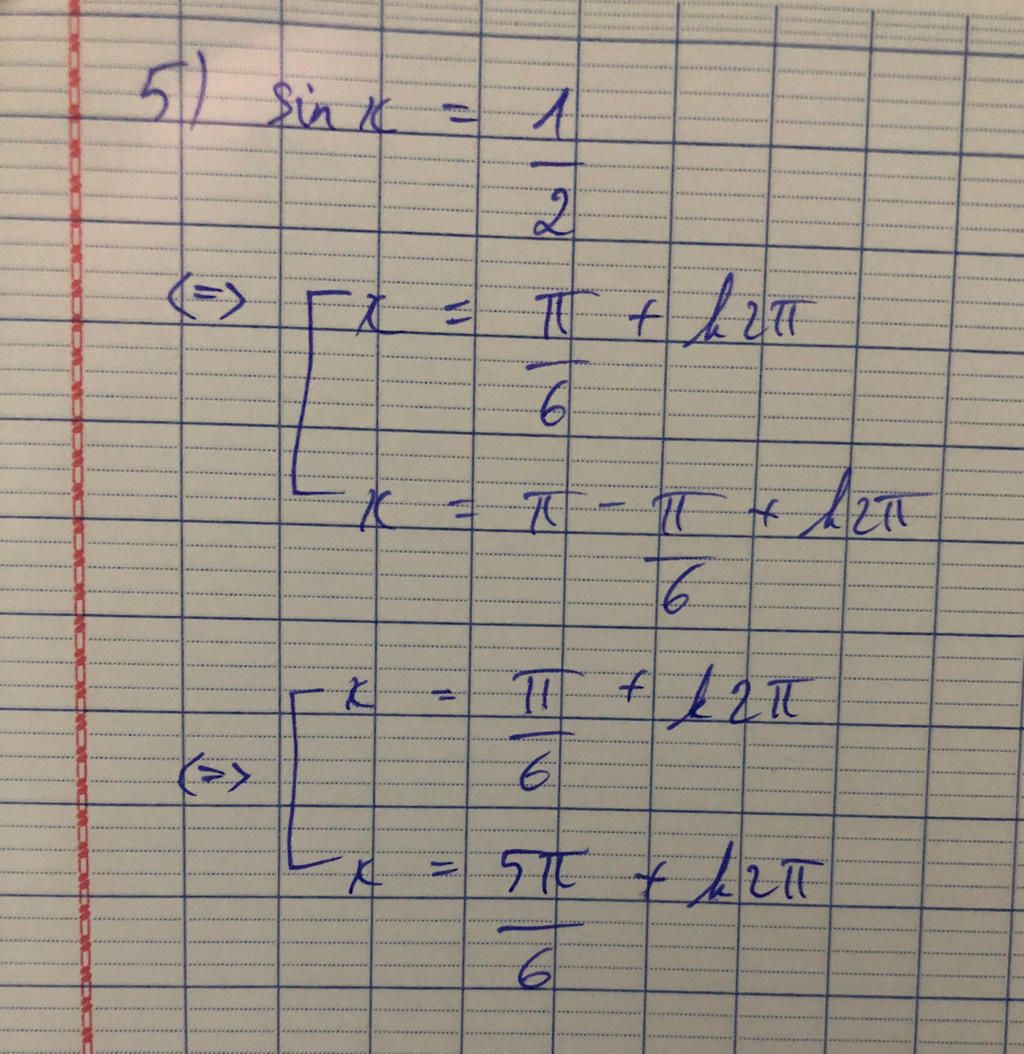 5) sin x = 1/2
<=> [ x = π/6 + k2π
x = π - π/6 + k2π
<=> [ x = π/6 + k2π
x = 5π/6 + k2π